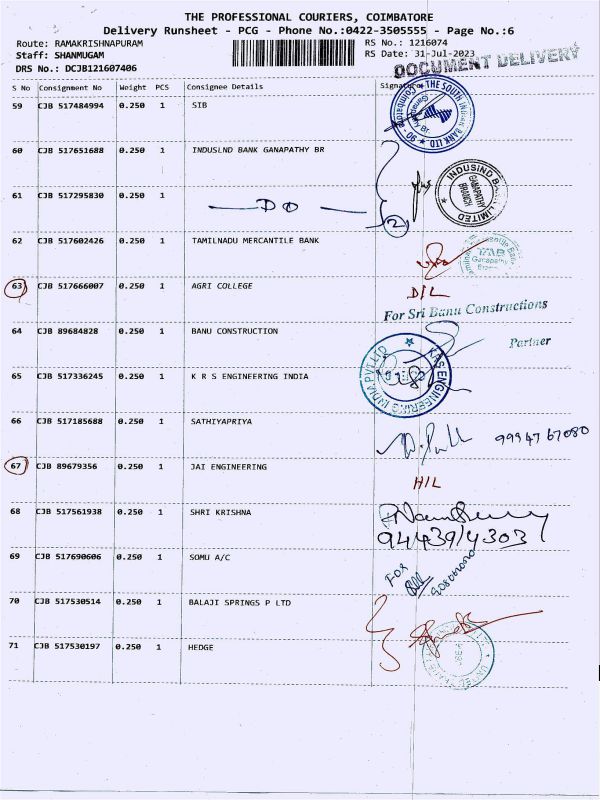 THE PROFESSIONAL COURIERS, COIMBATORE
Delivery Runsheet - PCG - Phone No.:0422-3505555 - Page No.:6
Route: RAMAKRISHNAPURAM RS No.: 1216074
Staff: SHANMUGAM RS Date: 31-Jul-2023
DRS No.: DCJB121607406 DOCUMENT DELIVERY
S No Consignment No Weight PCS Consignee Details Signature
59 CJB 517484994 0.250 1 SIB
THE SOUTH INDIAN BANK LTD
Ganapathy Br.
Coimbatore - 06
60 CJB 517651688 0.250 1 INDUSLND BANK GANAPATHY BR
INDUSIND BANK LIMITED
GANAPATHY BRANCH
61 CJB 517295830 0.250 1 — DO — 2
62 CJB 517602426 0.250 1 TAMILNADU MERCANTILE BANK
Ganapathy
63 CJB 517666007 0.250 1 AGRI COLLEGE D/L
For Sri Banu Constructions
64 CJB 89684828 0.250 1 BANU CONSTRUCTION
Partner
65 CJB 517336245 0.250 1 K R S ENGINEERING INDIA
ENGINEERING INDIA PVT LTD
66 CJB 517185688 0.250 1 SATHIYAPRIYA 9994767080
67 CJB 89679356 0.250 1 JAI ENGINEERING H/L
68 CJB 517561938 0.250 1 SHRI KRISHNA
94439/4303
69 CJB 517690606 0.250 1 SOMU A/C
FOR
70 CJB 517530514 0.250 1 BALAJI SPRINGS P LTD
71 CJB 517530197 0.250 1 HEDGE